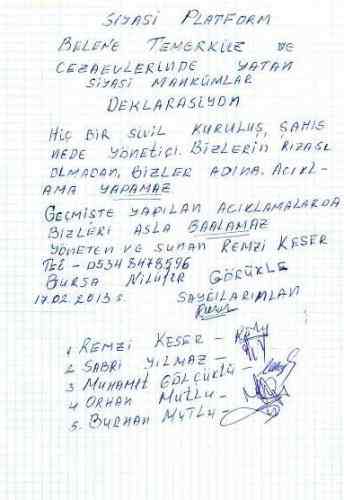 SİYASİ PLATFORM
BELENE TEMERKÜZ VE
CEZAEVLERİNDE YATAN
SİYASİ MAHKÜMLAR
DEKLARASİYON
HİÇ BİR SİVİL KURULUŞ, ŞAHIS
NEDE YÖNETİÇİ. BİZLERİN RIZASI
OLMADAN, BİZLER ADINA, AÇIKL-
AMA YAPAMAZ
GEÇMİŞTE YAPILAN AÇIKLAMALARDA
BİZLERİ ASLA BAALAMAZ
YÖNETEN VE SUNAN REMZİ KESER
TEL - 05348478596
BURSA NİLÜFER GÖRÜKLE
17.02.2013 s. SAYGILARIMLAN
1 REMZİ KESER -
2 SABRİ YILMAZ -
3 MUHAMET GÖLCÜKLÜ -
4 ORHAN MUTLU -
5. BURHAN MUTLU -